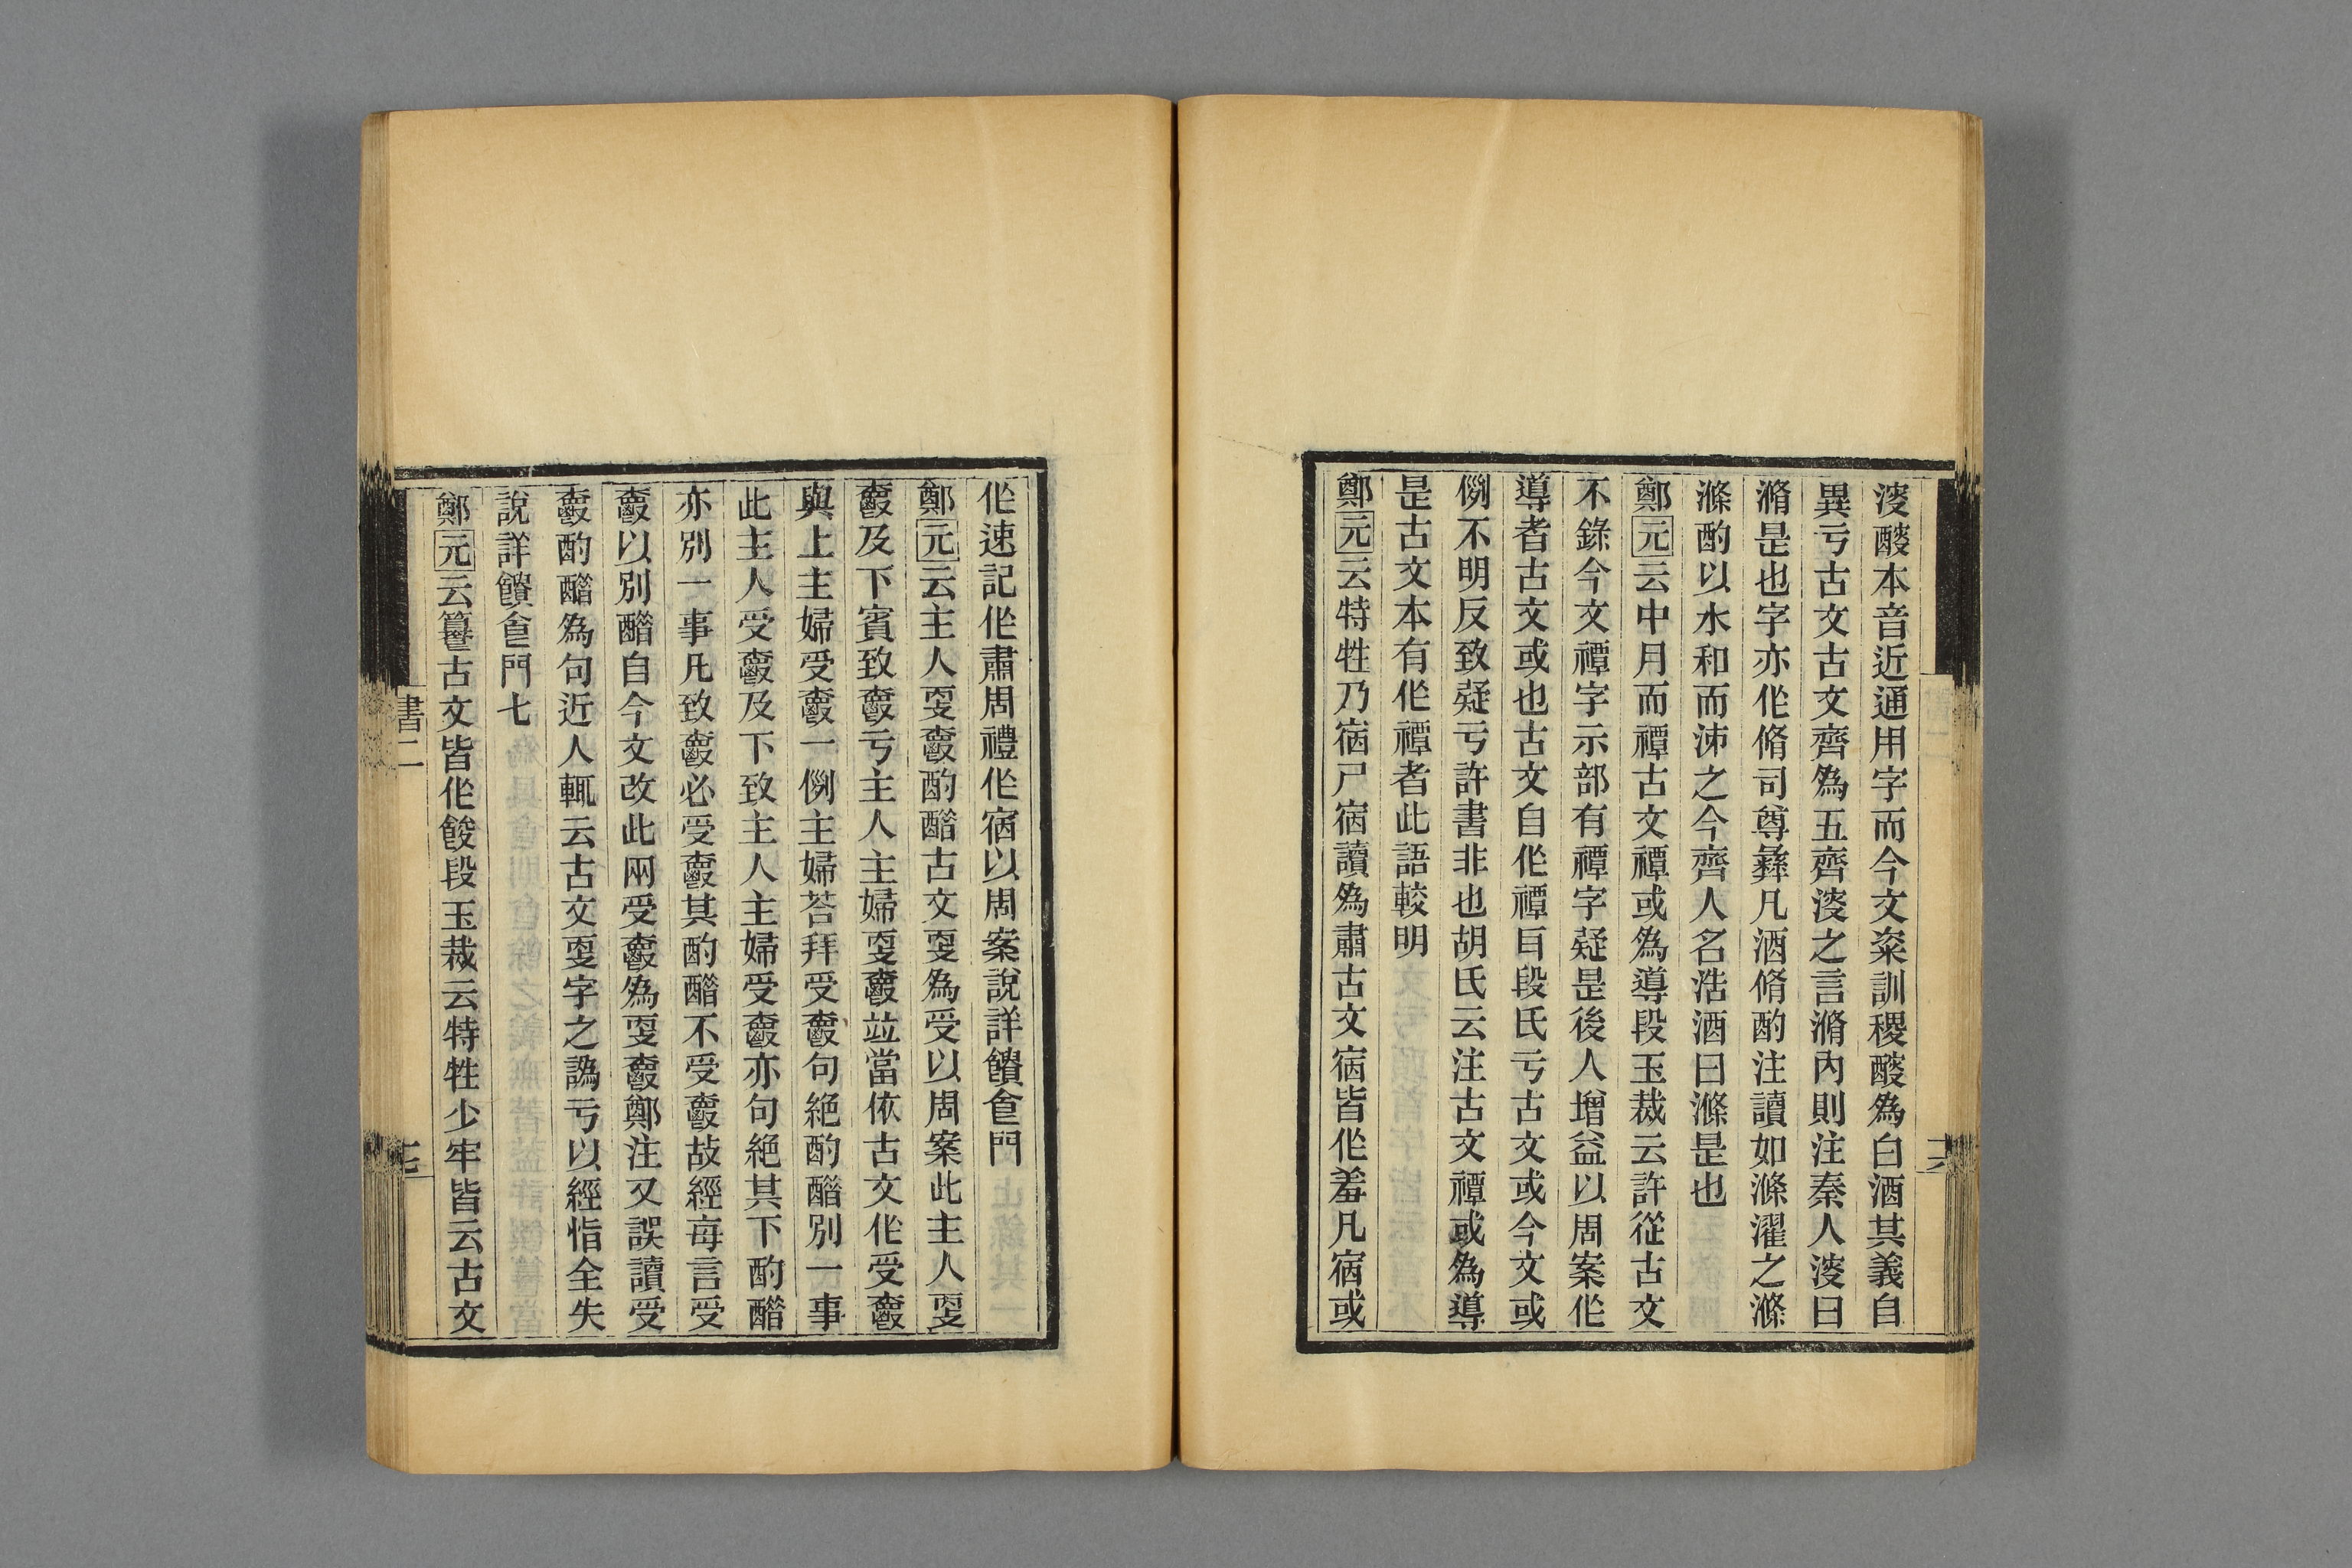 溲醙本音近通用字而今文粢訓稷醙為白酒其義自
異亏古文古文齊為五齊溲之言滫內則注秦人溲曰
滫是也字亦作脩司尊彝凡酒脩酌注讀如滌濯之滌
滌酌以水和而沛之今齊人名浩酒曰滌是也
鄭元云中月而禫古文禫或為導段玉裁云許從古文
不錄今文禫字示部有禫字疑是後人增益以周案作
導者古文或也古文自作禫㠯段氏亏古文或今文或
例不明反致疑亏許書非也胡氏云注古文禫或為導
是古文本有作禫者此語較明
鄭元云特牲乃宿尸宿讀為肅古文宿皆作羞凡宿或
作速記作肅周禮作宿以周案說詳饋食門
鄭元云主人㪅爵酌醋古文㪅為受以周案此主人㪅
爵及下賓致爵亏主人主婦㪅爵竝當依古文作受爵
與上主婦受爵一例主婦荅拜受爵句絕酌醋別一事
此主人受爵及下致主人主婦受爵亦句絕其下酌醋
亦別一事凡致爵必受爵其酌醋不受爵故經每言受
爵以別醋自今文改此兩受爵為㪅爵鄭注又誤讀受
爵酌醋為句近人輒云古文㪅字之譌亏以經恉全失
說詳饋食門七
鄭元云籑古文皆作餕段玉裁云特牲少牢皆云古文
書二
十六
十七